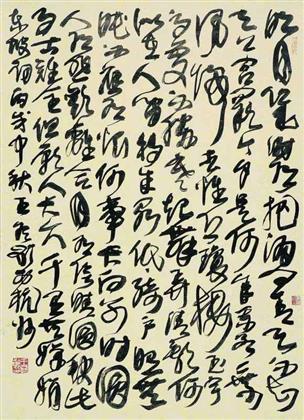 明月幾時有把酒問青天不知
天上宮闕今夕是何年我欲乘
風歸去又恐瓊樓玉宇
高處不勝寒起舞弄清影何
似在人間轉朱閣低綺戶照無
眠不應有恨何事長向別時圓
人有悲歡離合月有陰晴圓缺此
事古難全但願人長久千里共嬋娟
東坡詞丙戌中秋